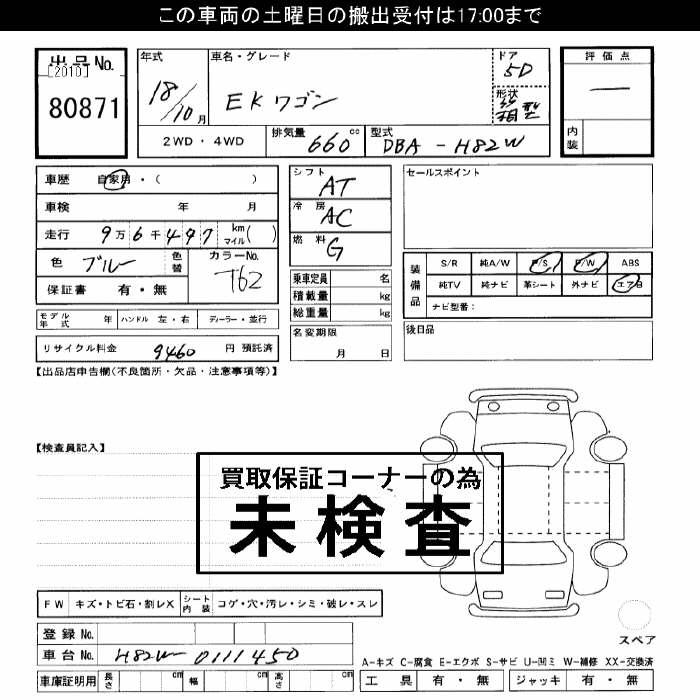 この車両の土曜日の搬出受付は17:00まで
出品No.
[2010]
80871
年式
18/10月
車名・グレード
EKワゴン
ドア
5D
形状
箱型
評価点
—
内装
2WD・4WD
排気量
660cc
型式
DBA-H82W
車歴 自家用・( )
車検 年 月
走行 9万6千497 km マイル( )
色 ブルー 色替
カラーNo. T62
保証書 有・無
シフト
AT
冷房
AC
燃料
G
乗車定員 名
積載量 kg
総重量 kg
名変期限
月 日
セールスポイント
装備品
S/R 純A/W P/S P/W ABS
純TV 純ナビ 革シート 外ナビ エアB
ナビ型番:
後日品
モデル年式 年 ハンドル 左・右 ディーラー・並行
リサイクル料金 9460 円 預託済
【出品店申告欄(不良箇所・欠品・注意事項等)】
【検査員記入】
買取保証コーナーの為
未検査
FW キズ・トビ石・割レX シート内装 コゲ・穴・汚レ・シミ・破レ・スレ
登録No.
車台No. H82W-0111450
車庫証明用 長さ cm 幅 cm 高さ cm
スペア
A-キズ C-腐食 E-エクボ S-サビ U-凹ミ W-補修 XX-交換済
工具 有・無 ジャッキ 有・無